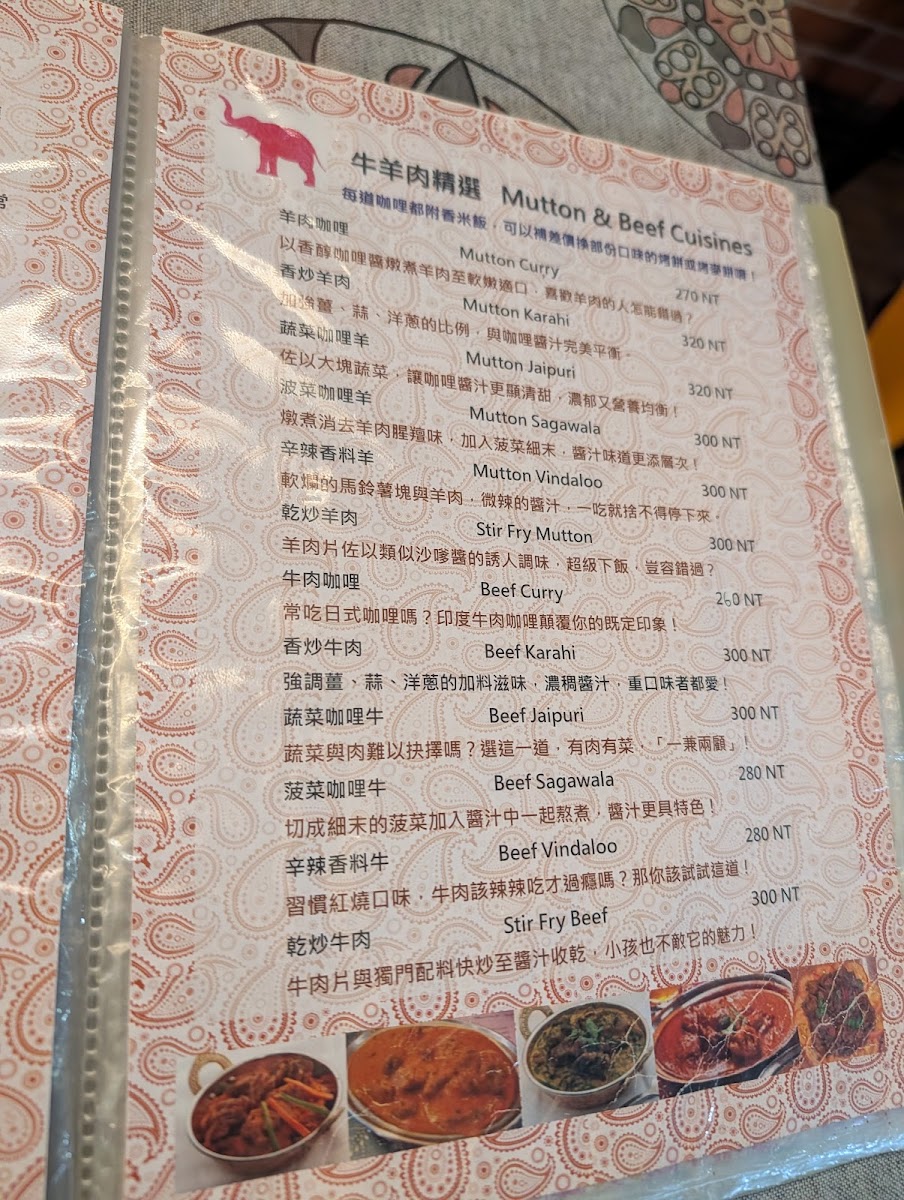 牛羊肉精選 Mutton & Beef Cuisines
每道咖哩都附香米飯，可以補差價換部份口味的烤餅或烤麥餅唷！
羊肉咖哩 Mutton Curry 270 NT
以香醇咖哩醬燉煮羊肉至軟嫩適口，喜歡羊肉的人怎能錯過？
香炒羊肉 Mutton Karahi 320 NT
加強薑、蒜、洋蔥的比例，與咖哩醬汁完美平衡。
蔬菜咖哩羊 Mutton Jaipuri 320 NT
佐以大塊蔬菜，讓咖哩醬汁更顯清甜，濃郁又營養均衡！
波菜咖哩羊 Mutton Sagawala 300 NT
燉煮消去羊肉腥羶味，加入菠菜細末，醬汁味道更添層次！
辛辣香料羊 Mutton Vindaloo 300 NT
軟爛的馬鈴薯塊與羊肉，微辣的醬汁，一吃就捨不得停下來。
乾炒羊肉 Stir Fry Mutton 300 NT
羊肉片佐以類似沙嗲醬的誘人調味，超級下飯，豈容錯過？
牛肉咖哩 Beef Curry 260 NT
常吃日式咖哩嗎？印度牛肉咖哩顛覆你的既定印象！
香炒牛肉 Beef Karahi 300 NT
強調薑、蒜、洋蔥的加料滋味，濃稠醬汁，重口味者都愛！
蔬菜咖哩牛 Beef Jaipuri 300 NT
蔬菜與肉難以抉擇嗎？選這一道，有肉有菜，「一兼兩顧」！
菠菜咖哩牛 Beef Sagawala 280 NT
切成細末的菠菜加入醬汁中一起熬煮，醬汁更具特色！
辛辣香料牛 Beef Vindaloo 280 NT
習慣紅燒口味，牛肉該辣辣吃才過癮嗎？那你該試試這道！
乾炒牛肉 Stir Fry Beef 300 NT
牛肉片與獨門配料快炒至醬汁收乾，小孩也不敵它的魅力！